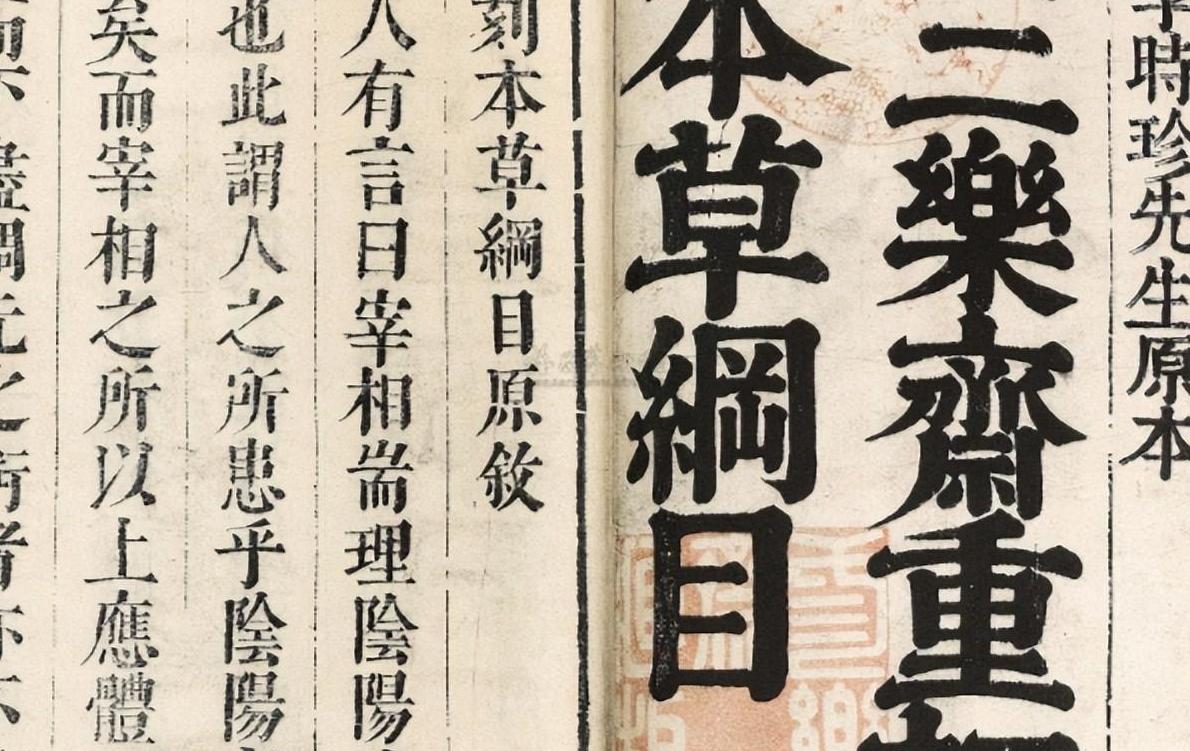 時珍先生原本
二樂齋重
本草綱目
刻本草綱目原敘
人有言曰宰相耑理陰陽
也此謂人之所患乎陰陽
矣而宰相之所以上應體